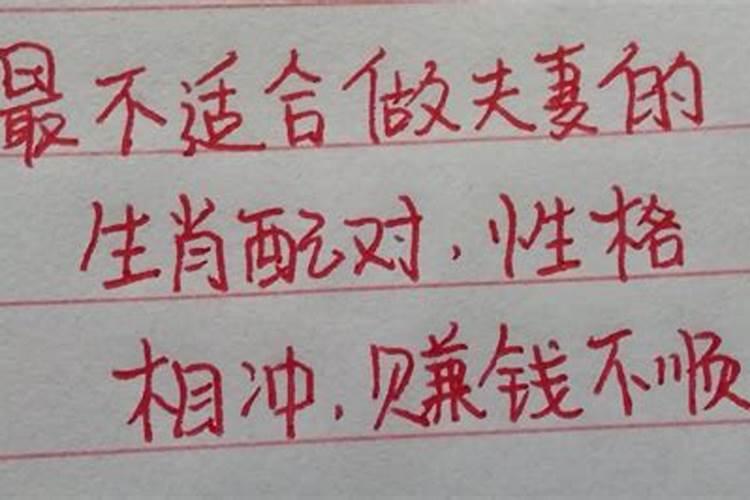 最不适合做夫妻的
生肖配对,性格
相冲,赚钱不顺